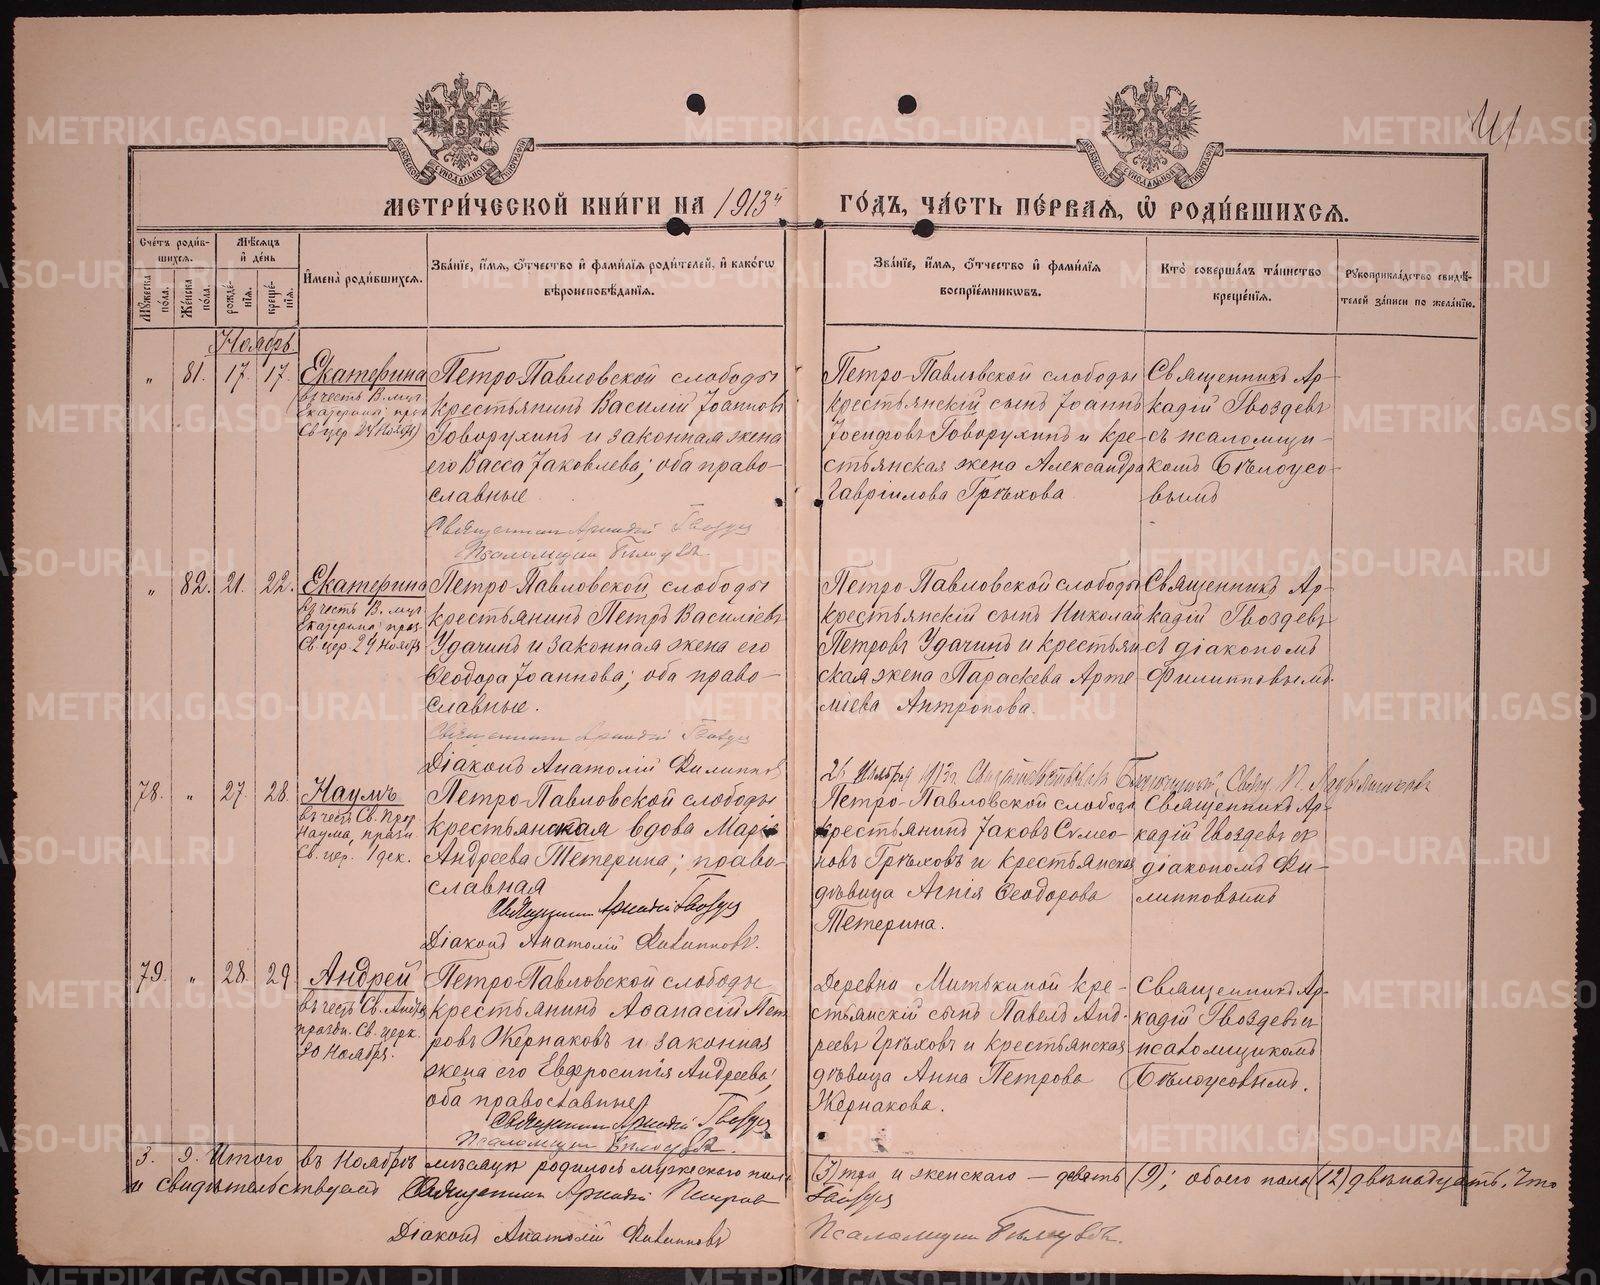 МЕТРИ́ЧЕСКОЙ КНИ́ГИ НА 1913й ГО́ДЪ, ЧА́СТЬ ПЕ́РВАЯ, Ѡ҆ РОДИ́ВШИХСЯ.
Сче́тъ роди́в-
шихся.
Мꙋ́жеска
по́ла.
Же́нска
по́ла.
Мѣ́сяцъ
и҆ де́нь
рожде́-
нїя.
креще́-
нїя.
И҆мена̀ роди́вшихся.
Зва́нїе, и҆́мя, ѻ҆́тчество и҆ фами́лїя роди́телей, и҆ како́гѡ
вѣроисповѣ́данїя.
Зва́нїе, и҆́мя, ѻ҆́тчество и҆ фами́лїя
воспрїе́мникѡвъ.
Кто̀ соверша́лъ та́инство
креще́нїя.
Рꙋкоприкла́дство свидѣ́-
телей за́писи по жела́нїю.
Ноябрь
„ 81. 17. 17. Екатерина
въ честь В. муч.
Екатерины; празд.
Св. цер. 24 Ноября
Петро-Павловской слободы
крестьянинъ Василій Іоанновъ
Говорухинъ и законная жена
его Васса Іаковлева; оба право-
славные.
Священник Аркадій Гвоздев
Псаломщик Белоусов
Петро-Павловской слободы
крестьянскій сынъ Іоаннъ
Іосифовъ Говорухинъ и кре-
стьянская жена Александра
Гавріилова Грѣхова
Священникъ Ар-
кадій Гвоздевъ
съ псаломщи-
комъ Бѣлоусо-
вымъ
„ 82. 21. 22. Екатерина
въ честь В. муч.
Екатерины; праз.
Св. цер. 24 Ноября
Петро-Павловской слободы
крестьянинъ Петръ Василіевъ
Удачинъ и законная жена его
Ѳеодора Іоаннова; оба право-
славные.
Священник Аркадій Гвоздев
Діаконъ Анатолій Филиппов
Петро-Павловской слободы
крестьянскій сынъ Николай
Петровъ Удачинъ и крестьян
ская жена Параскева Арте
міева Антропова.
Священникъ Ар-
кадій Гвоздевъ
съ діакономъ
Филипповымъ.
26 Ноября 1913 г.
78. „ 27. 28. Наумъ
въ честь Св. Прор.
Наума, празн.
Св. цер. 1 дек.
Петро-Павловской слободы
крестьянская вдова Марія
Андреева Тетерина; право-
славная
Священник Аркадій Гвоздев
Діаконъ Анатолій Филипповъ.
Петро-Павловской слободы
крестьянинъ Іаковъ Симео-
новъ Грѣховъ и крестьянская
дѣвица Агнія Ѳеодорова
Тетерина.
Священникъ Ар-
кадій Гвоздевъ съ
діакономъ Фи-
липповымъ
79. „ 28. 29 Андрей
въ честь Св. Андр.
празн. Св. церк.
30 Ноября.
Петро-Павловской слободы
крестьянинъ Аѳанасій Пет
ровъ Жернаковъ и законная
жена его Евфросинія Андреева;
оба православные
Священник Аркадій Гвоздев
Псаломщик Белоусов.
Деревни Митькиной кре-
стьянскій сынъ Павелъ Анд-
реевъ Грѣховъ и крестьянская
дѣвица Анна Петрова
Жернакова.
Священникъ Ар-
кадій Гвоздевъ съ
псаломщикомъ
Бѣлоусовымъ.
3. 9. Итого въ Ноябрѣ мѣсяцѣ родилось мужескаго пола (3) три и женскаго — девять (9); обоего пола (12) двѣнадцать. Что
и свидѣтельствуемъ Священник Аркадій Гвоздев
Діаконъ Анатолій Филипповъ Псаломщик Белоусовъ.
METRIKI.GASO-URAL.RU